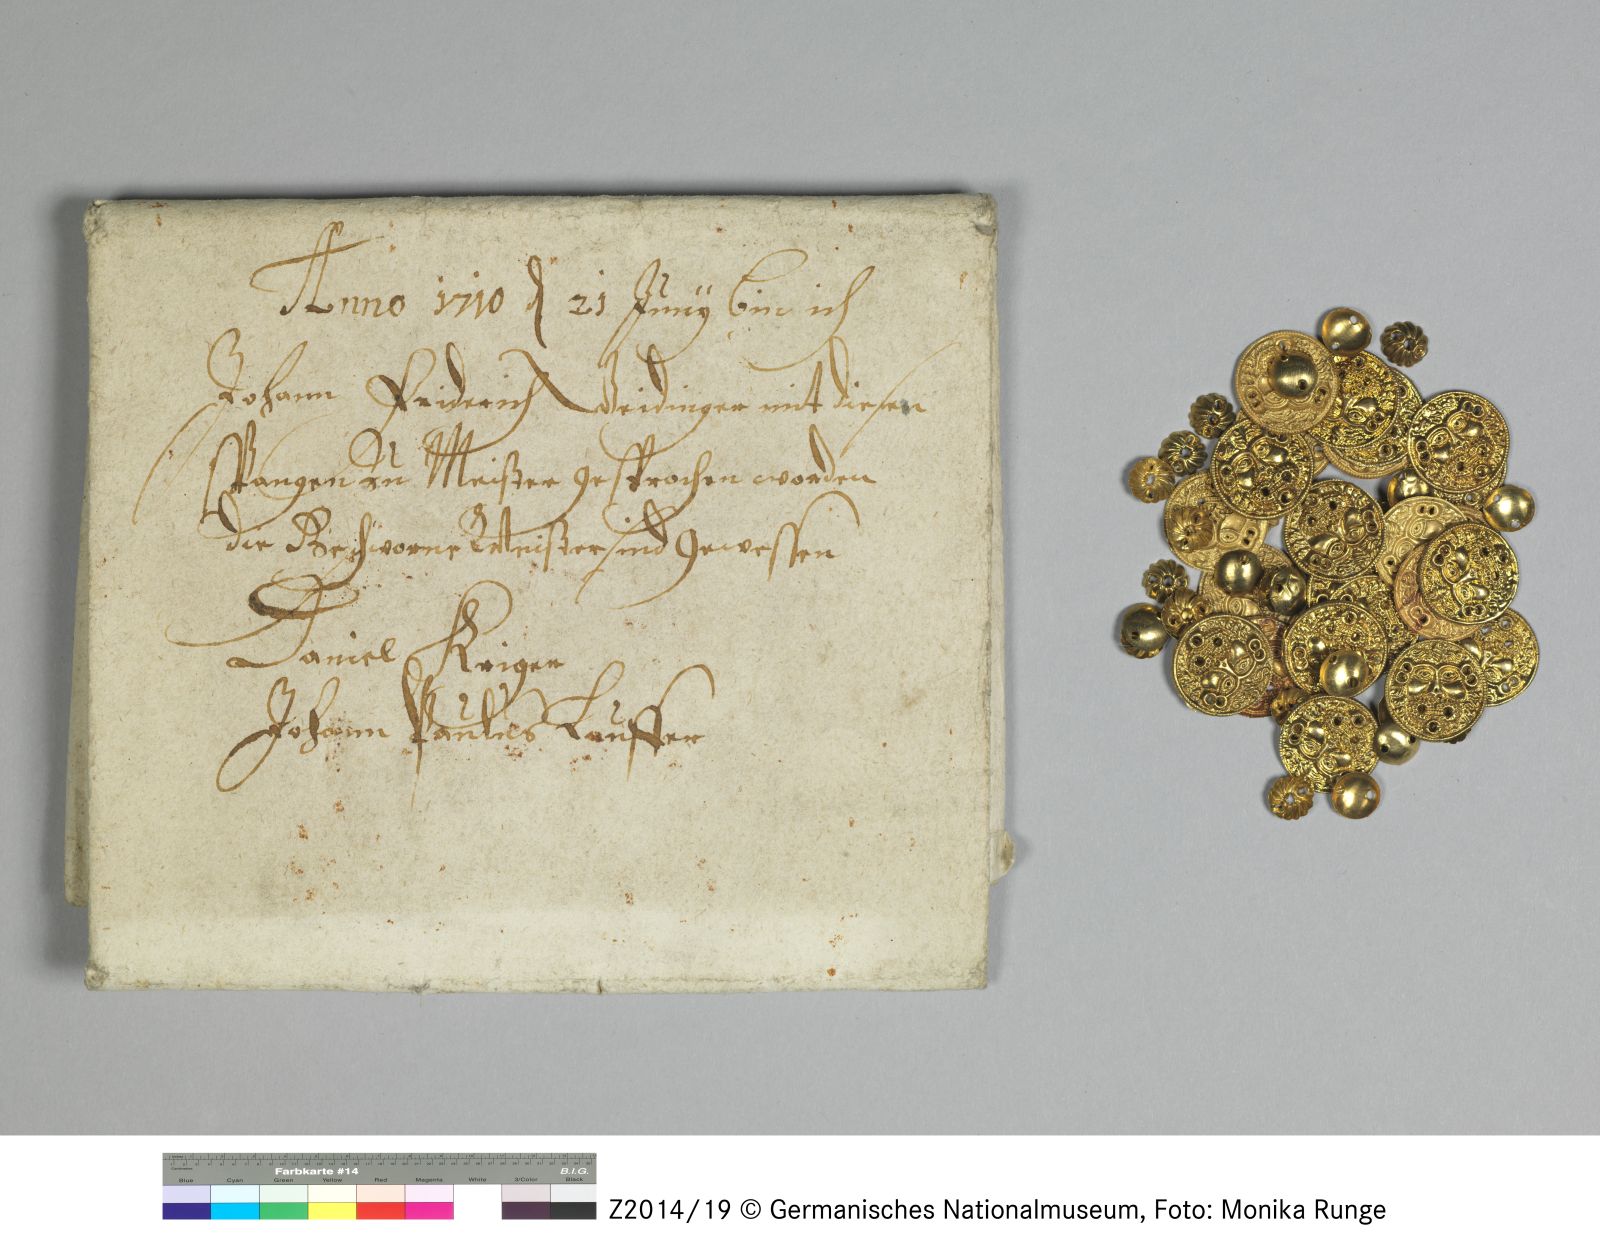 Anno 1710 d 21 Junÿ bin ich
Johann Friderich Weidinger mit diesen
Spangen zu Meister gesprochen worden
die Geschworne Meister sind gewessen
Daniel Kriger
Johann Paulus Lauffer
Farbkarte #14
B.I.G.
Centimetres
Blue Cyan Green Yellow Red Magenta White 3/Color Black
Z2014/19 © Germanisches Nationalmuseum, Foto: Monika Runge